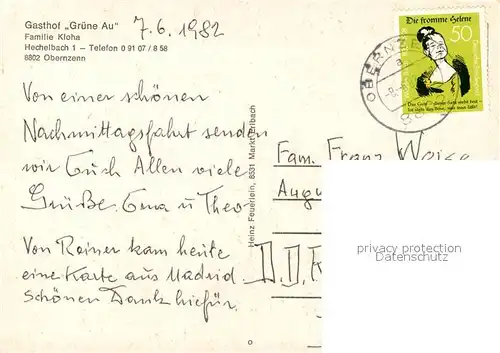 Gasthof „Grüne Au"
Familie Kloha
Hechelbach 1 — Telefon 0 91 07 / 8 58
8802 Obernzenn
7.6.1982
Von einer schönen
Nachmittagsfahrt senden
wir Euch Allen viele
Grüße. Oma u Theo.
Von Reiner kam heute
eine Karte aus Madrid.
Schönen Dank hiefür.
Heinz Feuerlein, 8531 Markt Erlbach
Die fromme Helene
50
OBERNZENN
Das Gute — dieser Satz steht fest —
Ist stets das Böse, was man läßt!
Fam. Franz Weise
Augu
D.D.R
privacy protection
Datenschutz